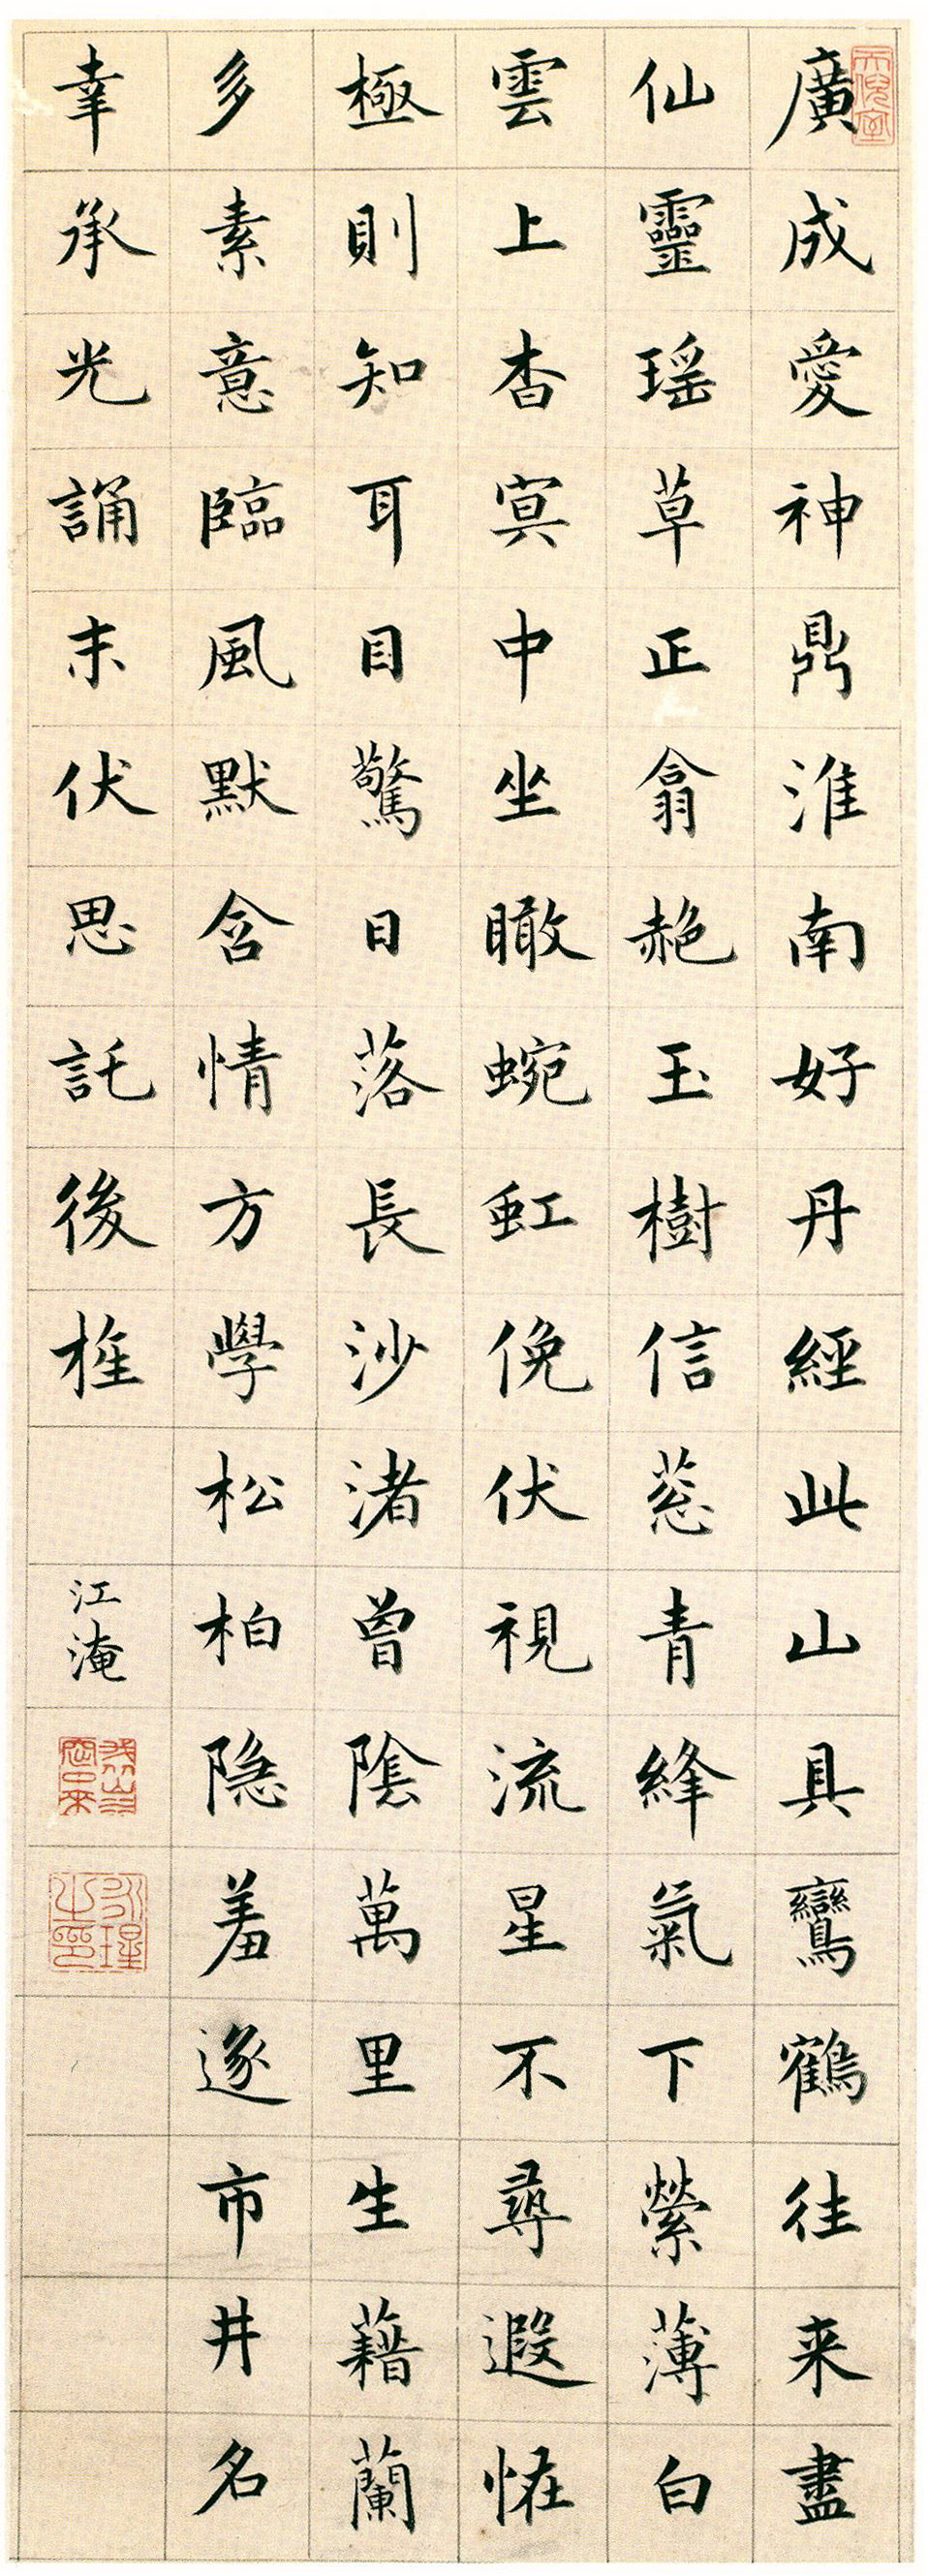 天倪室
廣成愛神鼎淮南好丹經此山具鸞鶴往来盡
仙靈瑶草正翕赩玉樹信葱青絳氣下縈薄白
雲上杳冥中坐瞰蜿虹俛伏視流星不尋遐怪
極則知耳目驚日落長沙渚曾陰萬里生藉蘭
多素意臨風默含情方學松柏隱羞逐市井名
幸承光誦末伏思託後旌
江淹
永瑆之印